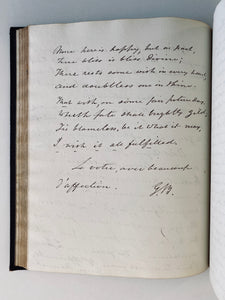 None here is happy, but in part,
True bliss is bliss Divine;
There rests some wish in every heart,
and doubtless one in thine.
That wish, on some fair future day,
Which fate shall brightly gild,
'Tis blameless, be it what it may,
I wish it all fulfilled.
à votre, avec beaucoup
d'affection.